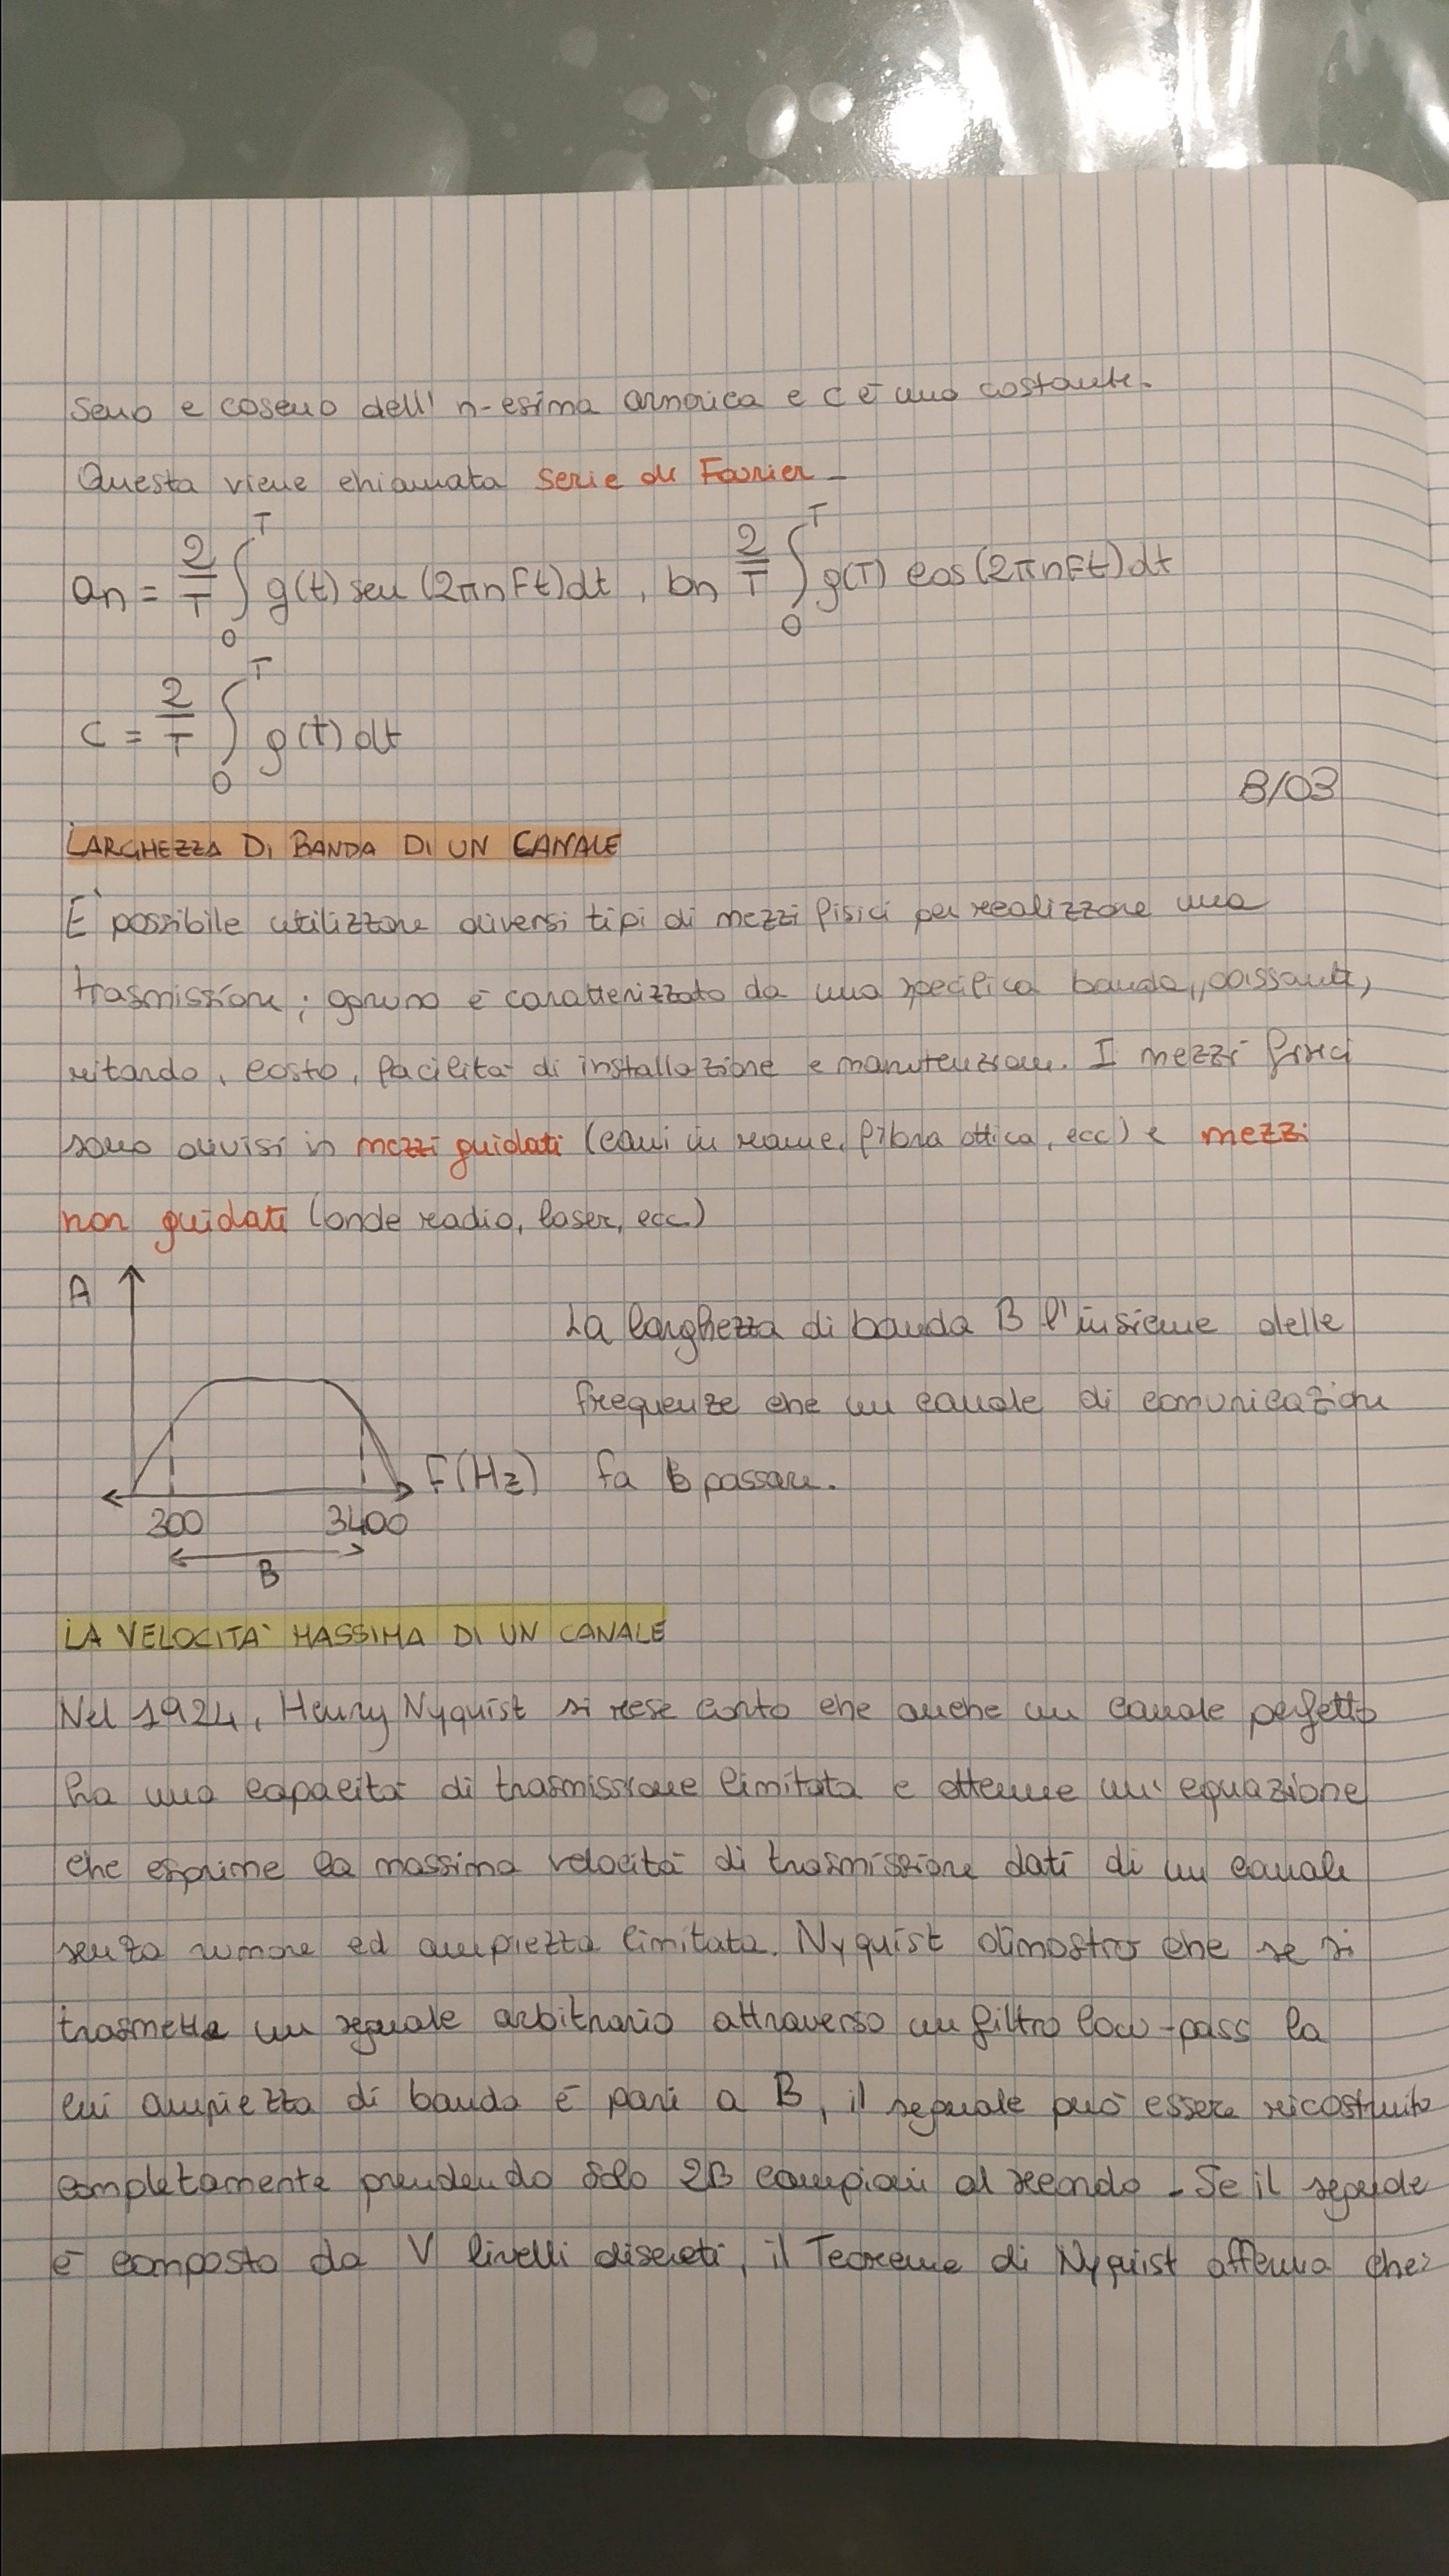 seno e coseno dell' n-esima armonica e c è una costante.
Questa viene chiamata serie di Fourier.
an = 2/T ∫₀ᵀ g(t) sen (2πnFt)dt , bn 2/T ∫₀ᵀ g(T) cos (2πnFt)dt
c = 2/T ∫₀ᵀ g(t) dt
8/03
LARGHEZZA DI BANDA DI UN CANALE
E' possibile utilizzare diversi tipi di mezzi fisici per realizzare una
trasmissione; ognuno è caratterizzato da una specifica banda, passante,
ritardo, costo, facilità di installazione e manutenzione. I mezzi fisici
sono divisi in mezzi guidati (cavi in rame, fibra ottica, ecc) e mezzi
non guidati (onde radio, laser, ecc.)
A
La larghezza di banda B l'insieme delle
frequenze che un canale di comunicazione
F(Hz) fa passare.
300 3400
B
LA VELOCITA' MASSIMA DI UN CANALE
Nel 1924, Henry Nyquist si rese conto che anche un canale perfetto
ha una capacità di trasmissione limitata e ottenne un' equazione
che esprime la massima velocità di trasmissione dati di un canale
senza rumore ed ampiezza limitata. Nyquist dimostrò che se si
trasmette un segnale arbitrario attraverso un filtro low-pass la
cui ampiezza di banda è pari a B, il segnale può essere ricostruito
completamente prendendo solo 2B campioni al secondo. Se il segnale
è composto da V livelli discreti, il Teorema di Nyquist afferma che: